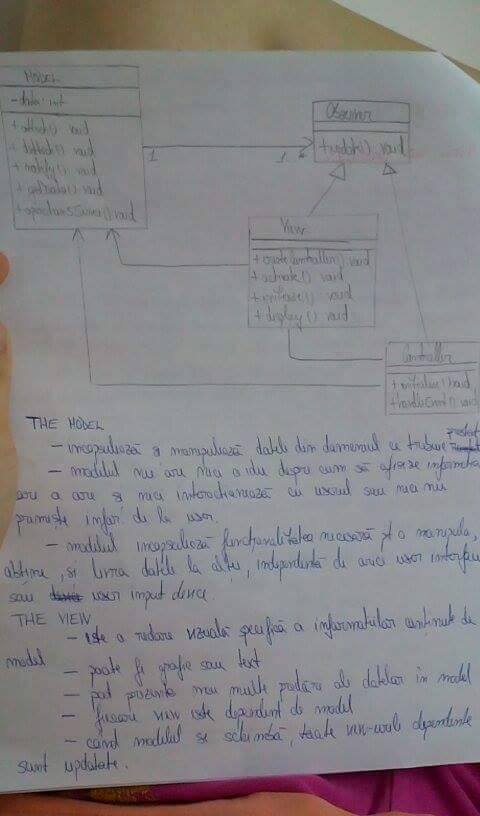 MODEL
- data: int
+ attach() void
+ detach() void
+ notify() void
+ getData() void
void
Observer
+ update() void
1
1
View
+ void
+ activate() void
+ initialise() void
+ display() void
Controller
+ initialise() void
+ handleEvent() void
THE MODEL
- incapsulează și manipulează datele din domeniul ce trebuie
- modelul nu are nici o idee despre cum să afișeze informația
are a are și nici interacționează cu userul sau nici nu
primește infor. de la user.
- modelul incapsulează funcționalitatea necesară pt a manipula,
obține, și livra datele la alții, independentă de orice user interface
sau user input device.
THE VIEW
- este o redare vizuală specifică a informațiilor conținute de
model
- poate fi grafic sau text
- pot prezenta mai multe ale datelor în model
- fiecare view este dependent de model
- când modelul se schimbă, toate view-urile dependente
sunt updatate.